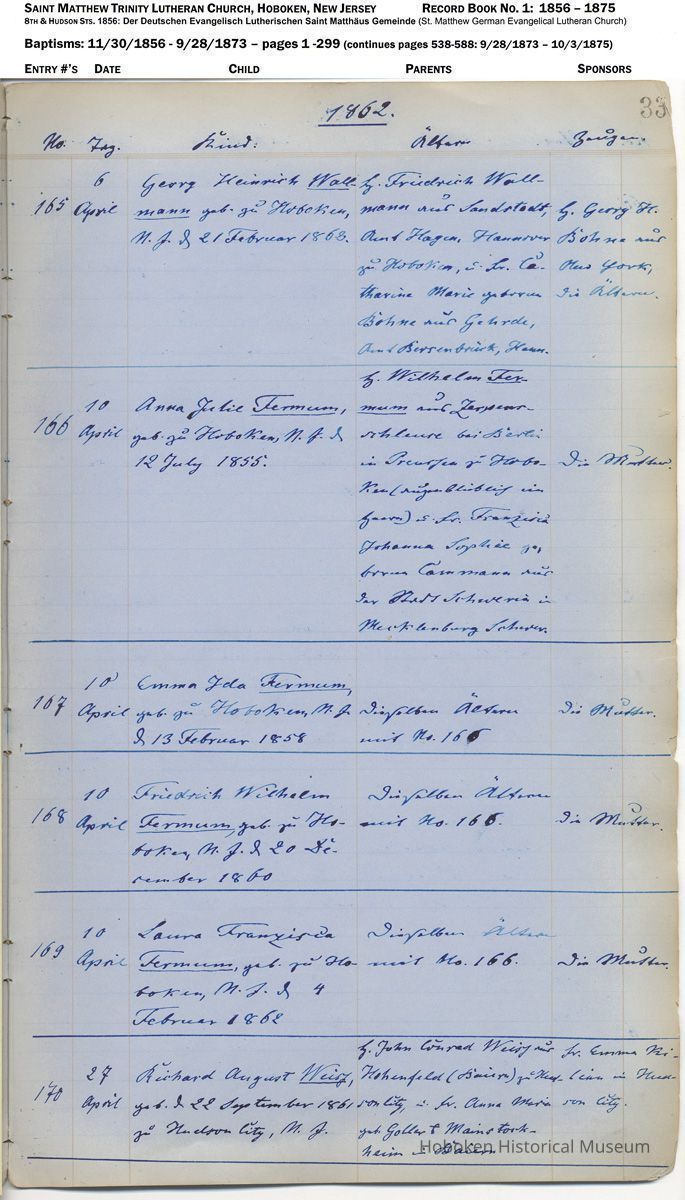 SAINT MATTHEW TRINITY LUTHERAN CHURCH, HOBOKEN, NEW JERSEY RECORD BOOK NO. 1: 1856 – 1875
8TH & HUDSON STS. 1856: Der Deutschen Evangelisch Lutherischen Saint Matthäus Gemeinde (St. Matthew German Evangelical Lutheran Church)
Baptisms: 11/30/1856 - 9/28/1873 – pages 1 -299 (continues pages 538-588: 9/28/1873 – 10/3/1875)
ENTRY #'S DATE CHILD PARENTS SPONSORS
1862.
33
No. Tag. Kind: Ältern Zeugen.
165
6
April
Georg Heinrich Wall-
mann geb. zu Hoboken,
N. J. d. 21 Februar 1862.
H. Friedrich Wall-
mann aus Sandstedt,
Amt Hagen, Hannover
zu Hoboken, u. Fr. Ca-
tharine Marie geboren
Böhne aus Gehrde,
Amt Bersenbrück, Hann.
H. Georg H.
Böhne aus
New York,
die Ältern.
166
10
April
Anna Julie Fermum,
geb. zu Hoboken, N. J. d.
12 July 1855.
H. Wilhelm Fer-
mum aus Zerpen-
schleuse bei Berlin
in Preussen zu Hobo-
ken (augenblicklich im
) u. Fr. Franzisca
Johanna Sophie ge-
boren Cammann aus
der Stadt Schwerin in
Mecklenburg Schwer.
die Mutter.
167
10
April
Emma Ida Fermum,
geb. zu Hoboken, N. J.
d. 13 Februar 1858
Dieselben Ältern
mit No. 166
die Mutter.
168
10
April
Friedrich Wilhelm
Fermum, geb. zu Ho-
boken, N. J. d. 20 De-
cember 1860
Dieselben Ältern
mit No. 166.
die Mutter.
169
10
April
Laura Franzisca
Fermum, geb. zu Ho-
boken, N. J. d. 4
Februar 1862
Dieselben Ältern
mit No. 166.
die Mutter.
170
27
April
Richard August Weisz,
geb. d. 22 September 1861
zu Hudson City, N. J.
H. John Conrad Weisz aus
Hohenfeld (Baiern) zu Hud-
son City, u. Fr. Anna Maria
geb. Goller Mainstock-
heim in Baiern
Fr. Emma
in Hud-
son City.
Hoboken Historical Museum